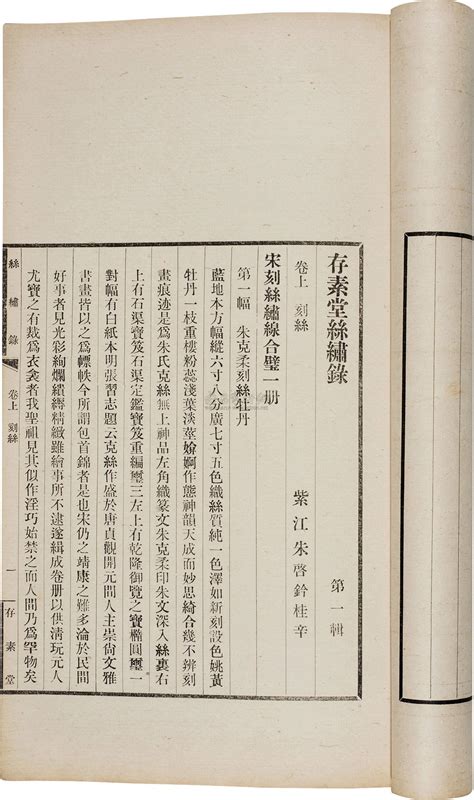 存素堂絲繡錄　第一輯
卷上　刻絲　紫江朱啓鈐桂辛
宋刻絲繡線合璧一册
第一幅　朱克柔刻絲牡丹
藍地本方幅縱六寸八分廣七寸五色織絲質純一色澤如新刻設色姚黃
牡丹一枝重樓粉蕊淺葉淡莖婠妠作態神韻天成而妙思綺合幾不辨刻
畫痕迹是爲朱氏克絲無上神品左角織篆文朱克柔印朱文深入絲裏右
上有石渠寶笈石渠定鑑寶笈重編璽三左上有乾隆御覽之寶橢圓璽一
對幅有白紙本明張習志題云克絲作盛於唐貞觀開元間人主崇尙文雅
書畫皆以之爲標帙今所謂包首錦者是也宋仍之靖康之難多淪於民間
好事者見光彩絢爛纘縟精緻雖繪事所不逮遂緝成卷册以供淸玩元人
尤寶之有裁爲衣衾者我聖祖見其似作淫巧始禁之而人間乃爲罕物矣
絲繡錄　卷上　刻絲　一　存素堂